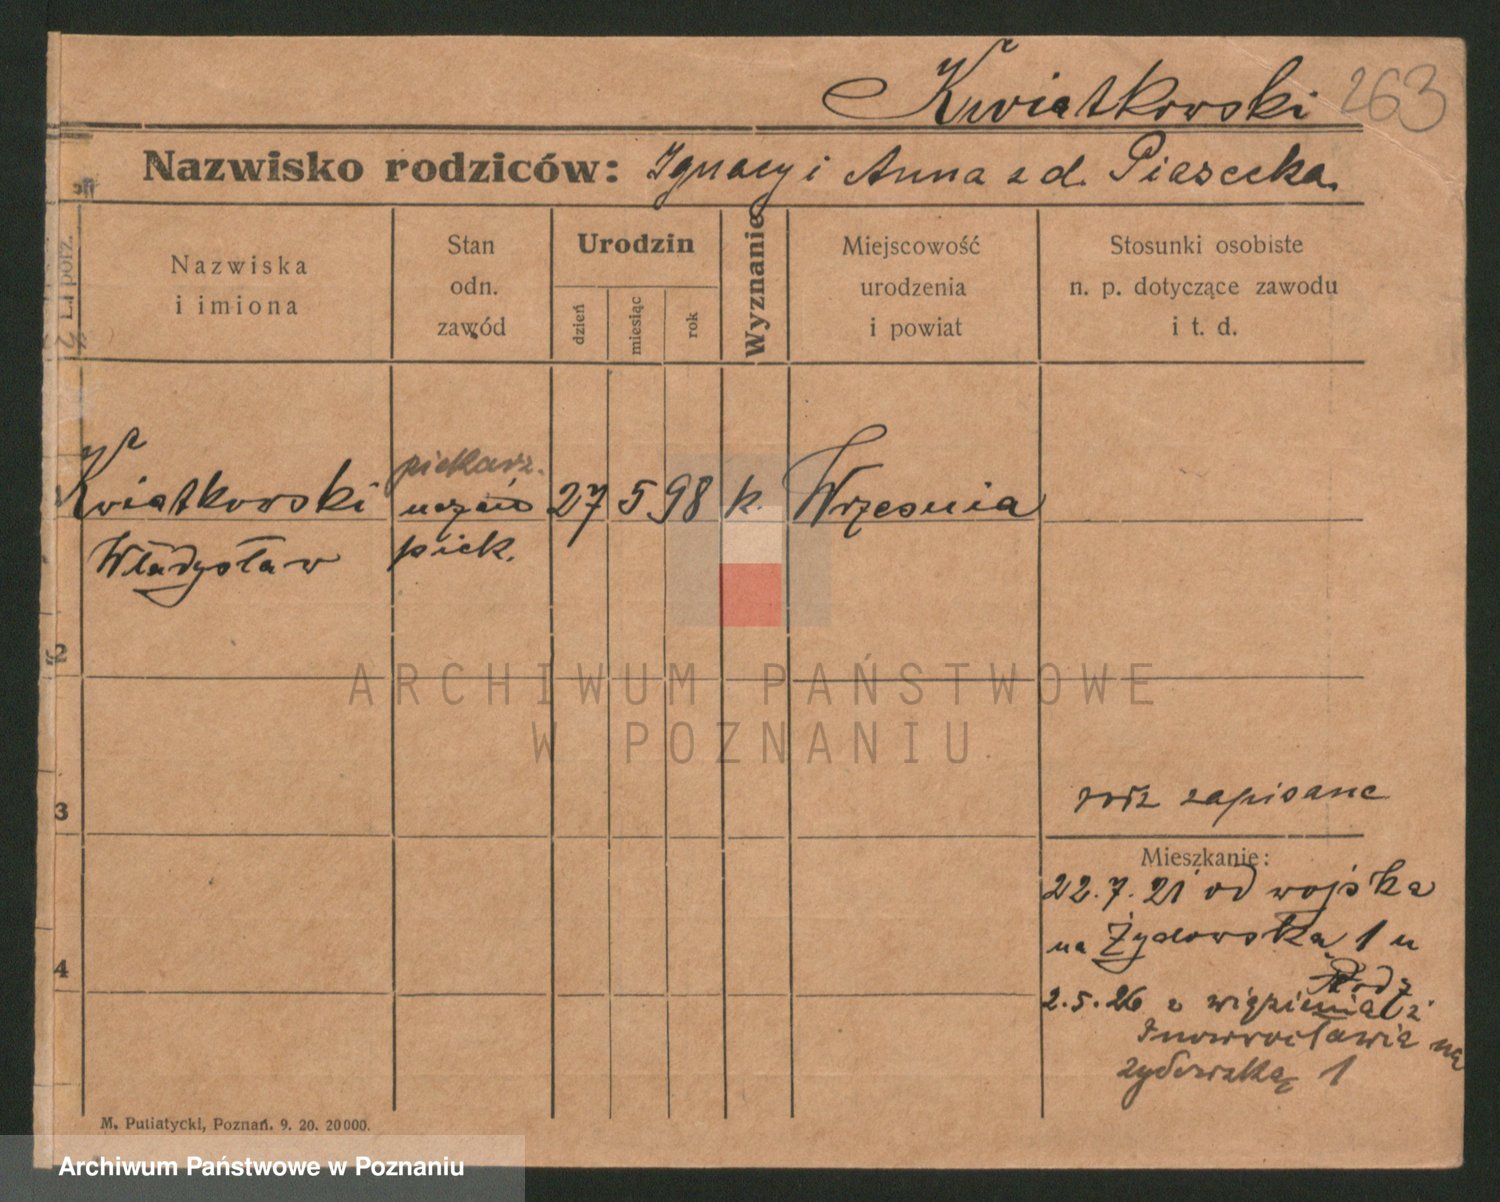 Kwiatkowski 263
Nazwisko rodziców: Ignacy i Anna z d. Piasecka.
L. porz.
Nazwiska
i imiona
Stan
odn.
zawód
Urodzin
dzień
miesiąc
rok
Wyznanie
Miejscowość
urodzenia
i powiat
Stosunki osobiste
n. p. dotyczące zawodu
i t. d.
piekarz.
Kwiatkowski uczeń 27 5 98 k. Września
Władysław piek.
2
3
4
rodz zapisane
Mieszkanie:
22.7.21 od wojska
na Żydowska 1 u
Rodz
2.5.26 z więzienia z
Inowrocławia na
żydowską 1
M. Putiatycki, Poznań. 9. 20. 20000.
ARCHIWUM PAŃSTWOWE
W POZNANIU
Archiwum Państwowe w Poznaniu